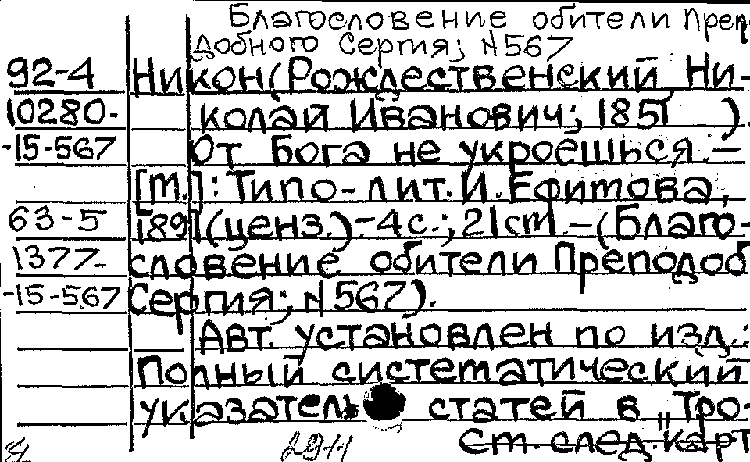 Благословение обители Преп
добного Сергия; N567
92-4 Никон(Рождественский, Ни-
10280- колай Иванович; 1851 ).
-15-567 От Бога не укроешься.—
[М.]: Типо-лит. И. Ефимова,
63-5 1891(ценз.)-4с.; 21cm.—(Благо-
1377- словение обители Преподоб
-15-567 Сергия; N567).
Авт. установлен по изд.:
Полный систематический
указатель статей в "Тро-
См. след. карт
2911